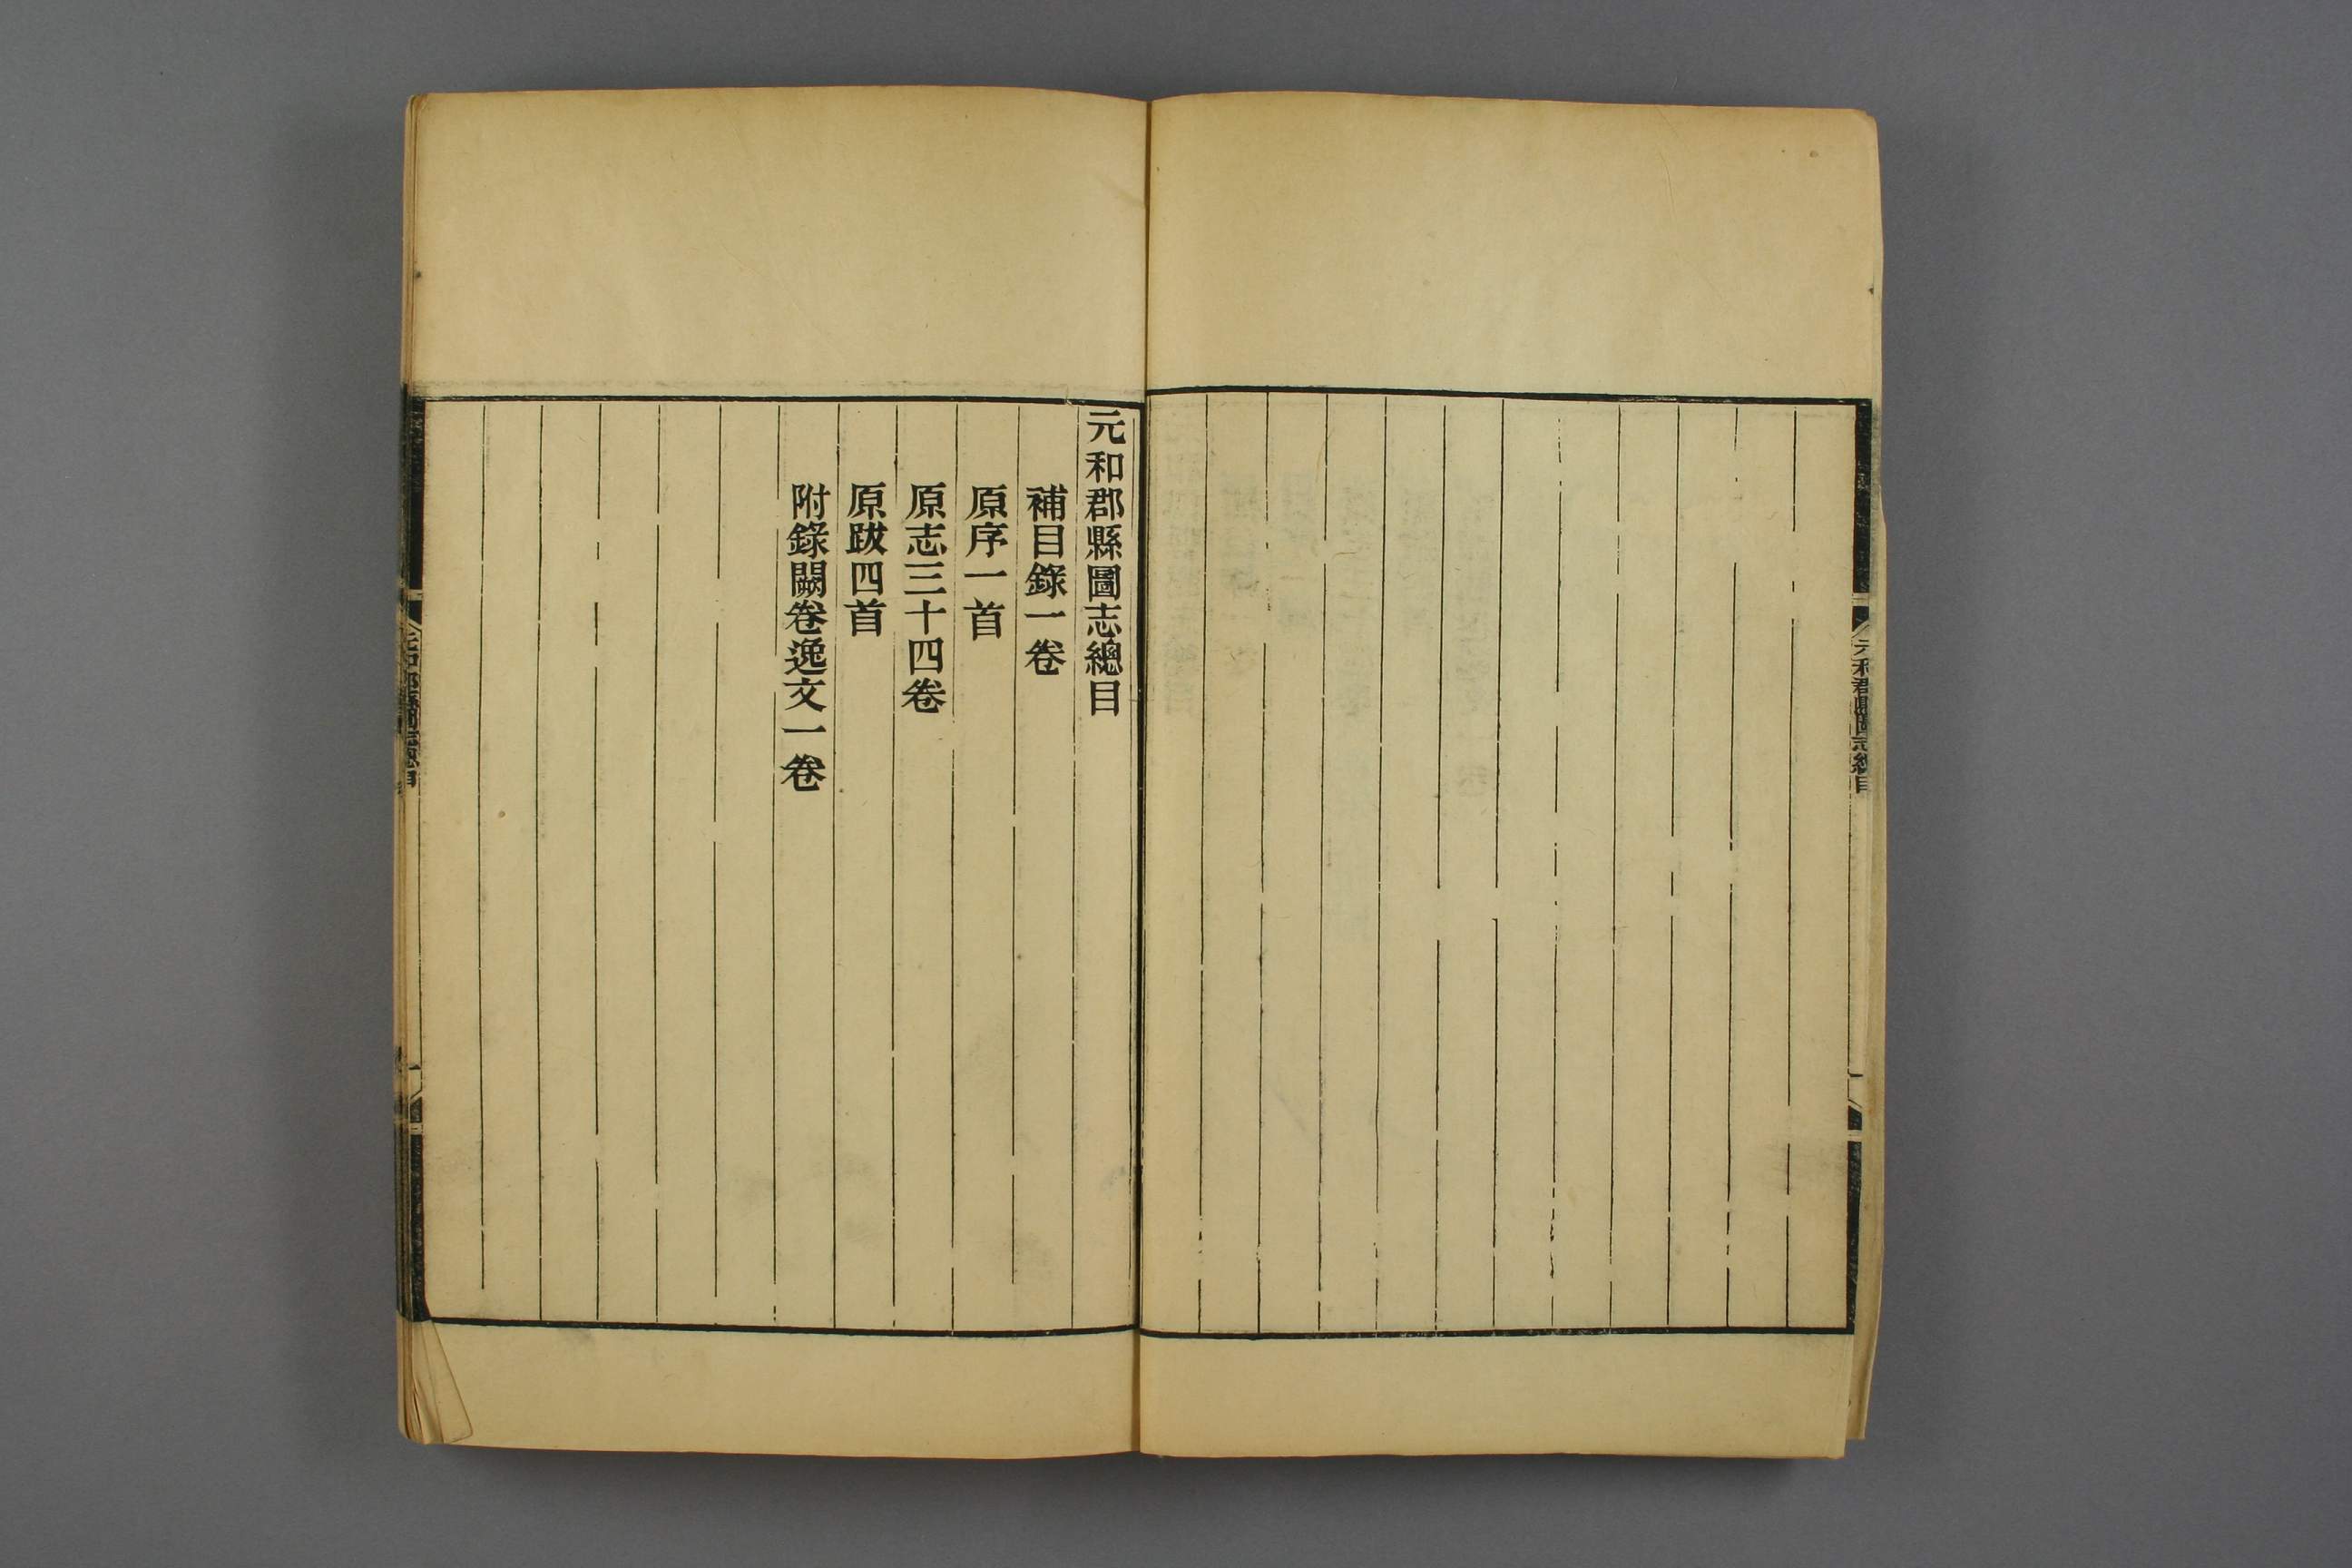 元和郡縣圖志總目
元和郡縣圖志總目
補目錄一卷
原序一首
原志三十四卷
原跋四首
附錄闕卷逸文一卷